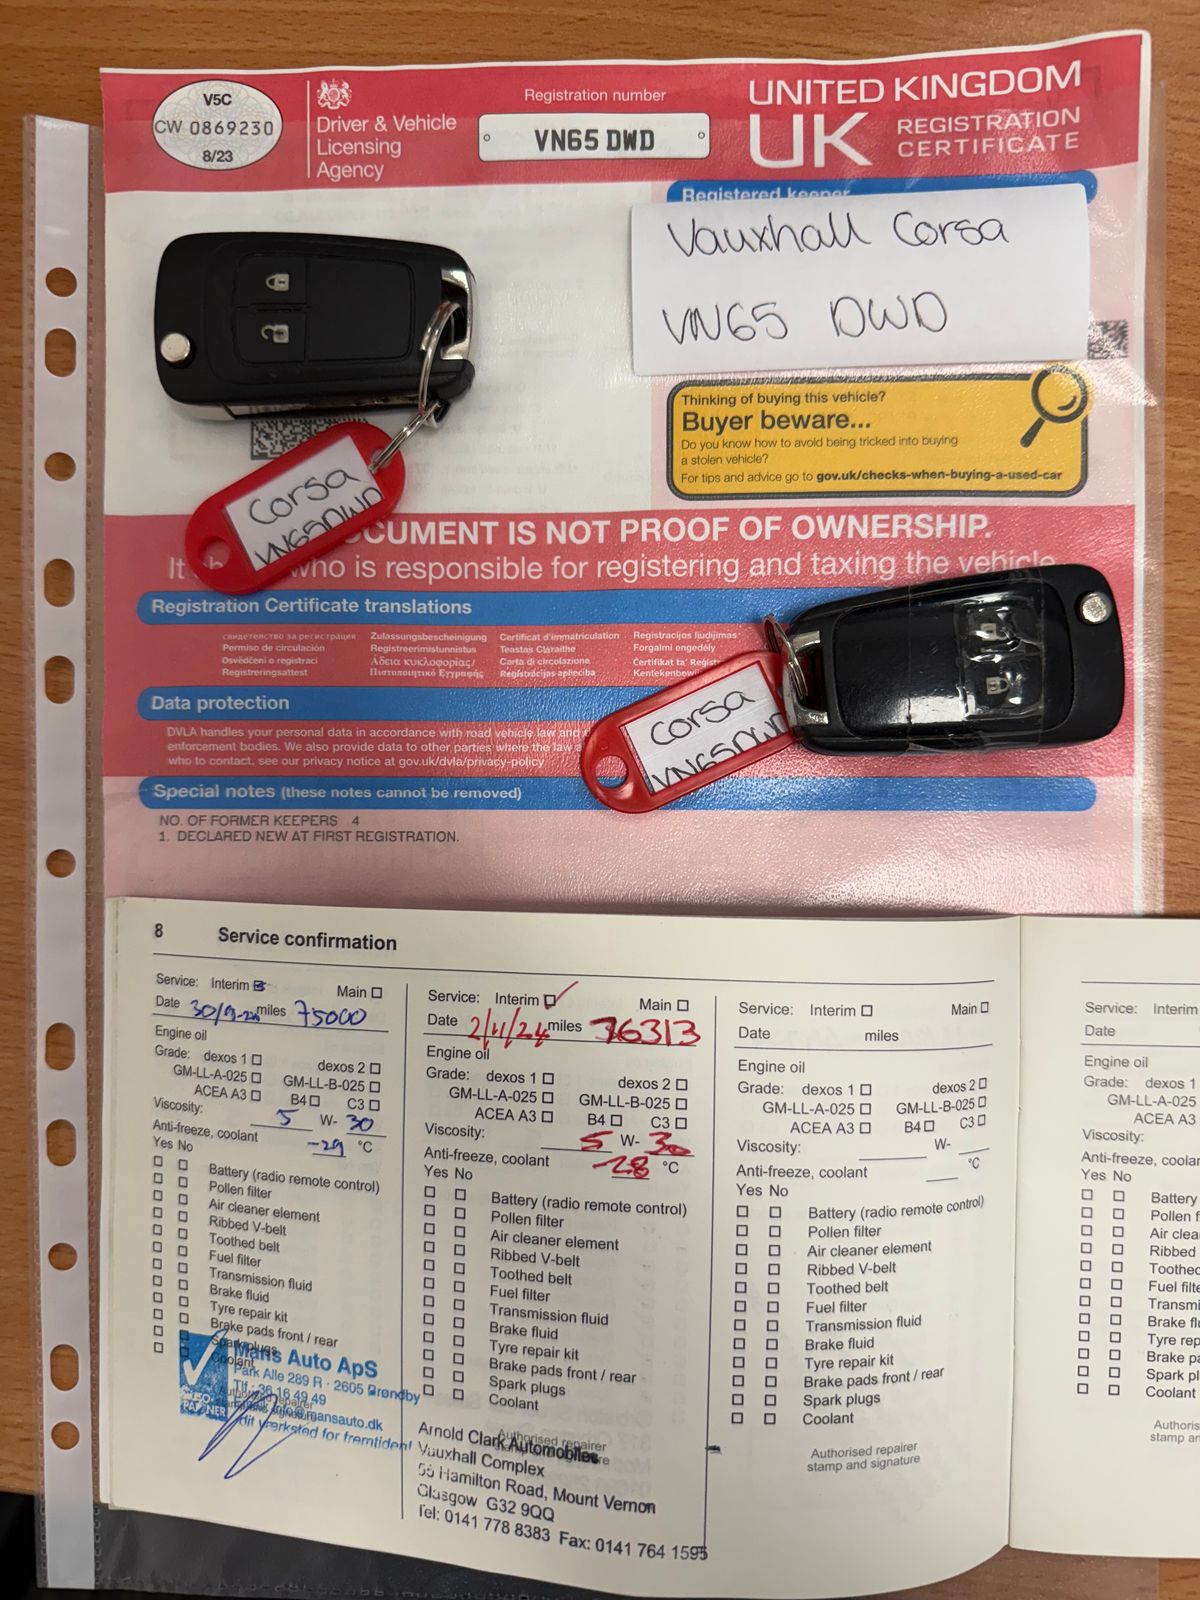 V5C
CW 0869230
8/23
Driver & Vehicle
Licensing
Agency
Registration number
VN65 DWD
UNITED KINGDOM
UK REGISTRATION
CERTIFICATE
Registered keeper
Vauxhall Corsa
VN65 DWD
Thinking of buying this vehicle?
Buyer beware...
Do you know how to avoid being tricked into buying
a stolen vehicle?
For tips and advice go to gov.uk/checks-when-buying-a-used-car
Corsa
VN65DWD
CUMENT IS NOT PROOF OF OWNERSHIP.
It who is responsible for registering and taxing the vehicle
Registration Certificate translations
Permiso de circulación
Osvědčení o registraci
Registreringsattest
Zulassungsbescheinigung
Registreerimistunnistus
Άδεια κυκλοφορίας/
Πιστοποιητικό Εγγραφής
Certificat d'immatriculation
Teastas Cláraithe
Carta di circolazione
Reģistrācijas apliecība
Registracijos liudijimas
Forgalmi engedély
Ċertifikat ta' Reġist
Kentekenbew
Corsa
VN65DWD
Data protection
DVLA handles your personal data in accordance with road vehicle law and
enforcement bodies. We also provide data to other parties where the law a
who to contact, see our privacy notice at gov.uk/dvla/privacy-policy
Special notes (these notes cannot be removed)
NO. OF FORMER KEEPERS 4
1. DECLARED NEW AT FIRST REGISTRATION.
8 Service confirmation
Service: Interim Main
Date 30/9- miles 75000
Engine oil
Grade: dexos 1 dexos 2
GM-LL-A-025 GM-LL-B-025
ACEA A3 B4 C3
Viscosity: 5 W- 30
Anti-freeze, coolant -29 °C
Yes No
Battery (radio remote control)
Pollen filter
Air cleaner element
Ribbed V-belt
Toothed belt
Fuel filter
Transmission fluid
Brake fluid
Tyre repair kit
Brake pads front / rear
Spark plugs
Coolant
Mans Auto ApS
Park Alle 289 R · 2605 Brøndby
Tlf.: 36 16 49 49
Email: info@mansauto.dk
dit værksted for fremtiden!
Service: Interim Main
Date 2/11/24 miles 76313
Engine oil
Grade: dexos 1 dexos 2
GM-LL-A-025 GM-LL-B-025
ACEA A3 B4 C3
Viscosity: 5 W- 30
Anti-freeze, coolant -28 °C
Yes No
Battery (radio remote control)
Pollen filter
Air cleaner element
Ribbed V-belt
Toothed belt
Fuel filter
Transmission fluid
Brake fluid
Tyre repair kit
Brake pads front / rear
Spark plugs
Coolant
Authorised repairer
Arnold Clark Automobiles
Vauxhall Complex
55 Hamilton Road, Mount Vernon
Glasgow G32 9QQ
Tel: 0141 778 8383 Fax: 0141 764 1595
Service: Interim Main
Date miles
Engine oil
Grade: dexos 1 dexos 2
GM-LL-A-025 GM-LL-B-025
ACEA A3 B4 C3
Viscosity: W-
Anti-freeze, coolant °C
Yes No
Battery (radio remote control)
Pollen filter
Air cleaner element
Ribbed V-belt
Toothed belt
Fuel filter
Transmission fluid
Brake fluid
Tyre repair kit
Brake pads front / rear
Spark plugs
Coolant
Authorised repairer
stamp and signature
Service: Interim
Date
Engine oil
Grade: dexos 1
GM-LL-A-025
ACEA A3
Viscosity:
Anti-freeze, coolan
Yes No
Battery
Pollen f
Air clea
Ribbed
Toothed
Fuel filte
Transmi
Brake flu
Tyre rep
Brake pa
Spark pl
Coolant
Authoris
stamp an